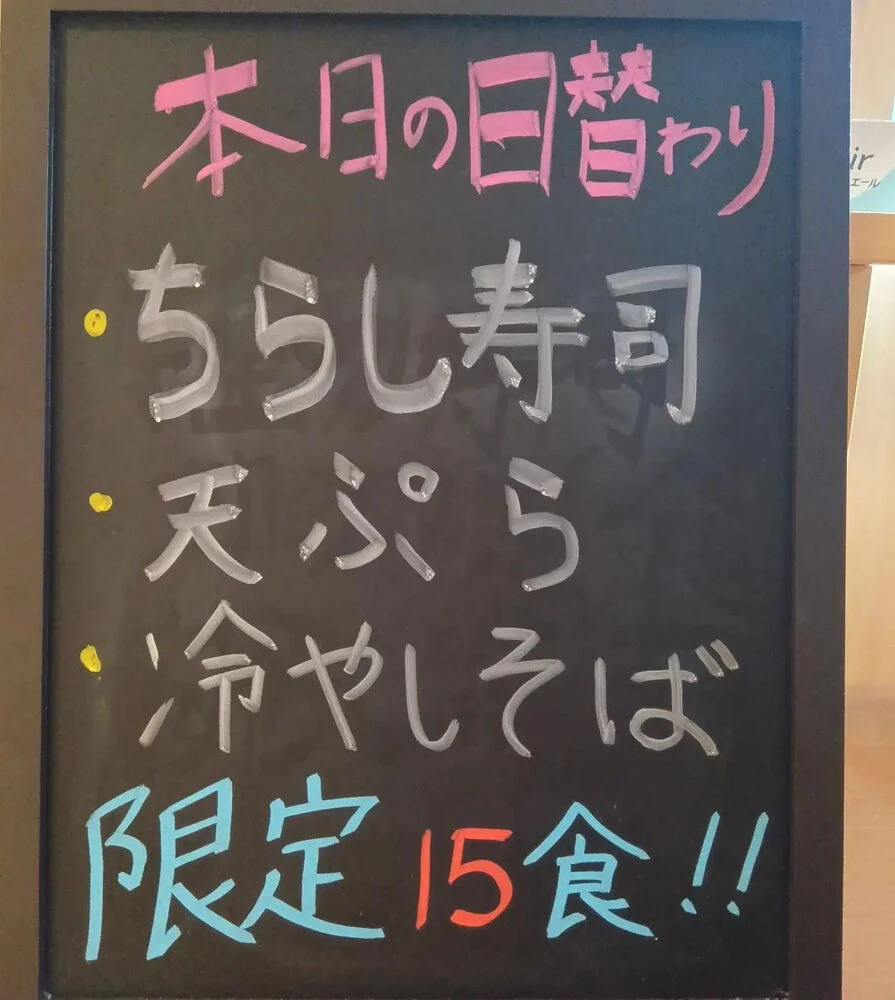 本日の日替わり
・ちらし寿司
・天ぷら
・冷やしそば
限定15食!!
ir
エール